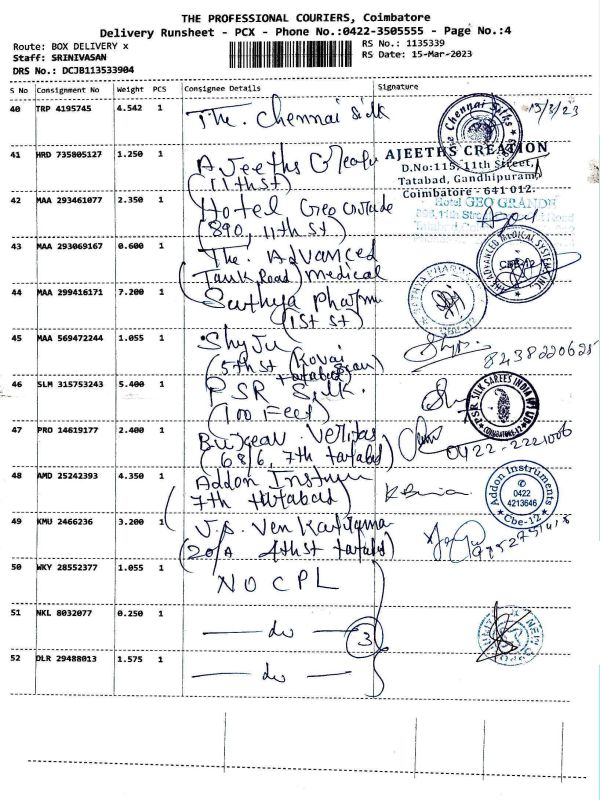 THE PROFESSIONAL COURIERS, Coimbatore
Delivery Runsheet - PCX - Phone No.:0422-3505555 - Page No.:4
Route: BOX DELIVERY x
RS No.: 1135339
Staff: SRINIVASAN
RS Date: 15-Mar-2023
DRS No.: DCJB113533904
S No Consignment No Weight PCS Consignee Details Signature
40 TRP 4195745 4.542 1 The. Chennai Silk
The Chennai Silks
15/3/23
41 HRD 735805127 1.250 1 Ajeeths
(11th St)
AJEETHS CREATION
D.No:115, 11th Street,
Tatabad, Gandhipuram,
Coimbatore - 641 012.
42 MAA 293461077 2.350 1 Hotel Geo
(890, 11th St)
Hotel GEO GRANDE
43 MAA 293069167 0.600 1 The. Advanced
(Tank Road) medical
THE ADVANCED MEDICAL SYSTEMS
CBE-12
44 MAA 299416171 7.200 1 Sathya Pharma
(1st St)
SATHYA PHARMA
CBE-12
45 MAA 569472244 1.055 1 Shyju
(5th St (Kovai
8438220625
46 SLM 315753243 5.400 1 PSR Silk.
(100 Feet)
PSR SILK SAREES INDIA (P) LTD
47 PRO 14619177 2.400 1 Bureau. Veritas
(68/6, 7th tatabad)
0422-2221006
48 AMD 25242393 4.350 1 Addon Instrum
7th tatabad)
Addon Instruments
0422
4213646
Cbe-12
49 KMU 2466236 3.200 1
(20/A 4th St tatabad)
50 WKY 28552377 1.055 1 NO CPL
51 NKL 8032077 0.250 1 — do — 3
52 DLR 29488013 1.575 1 — do —